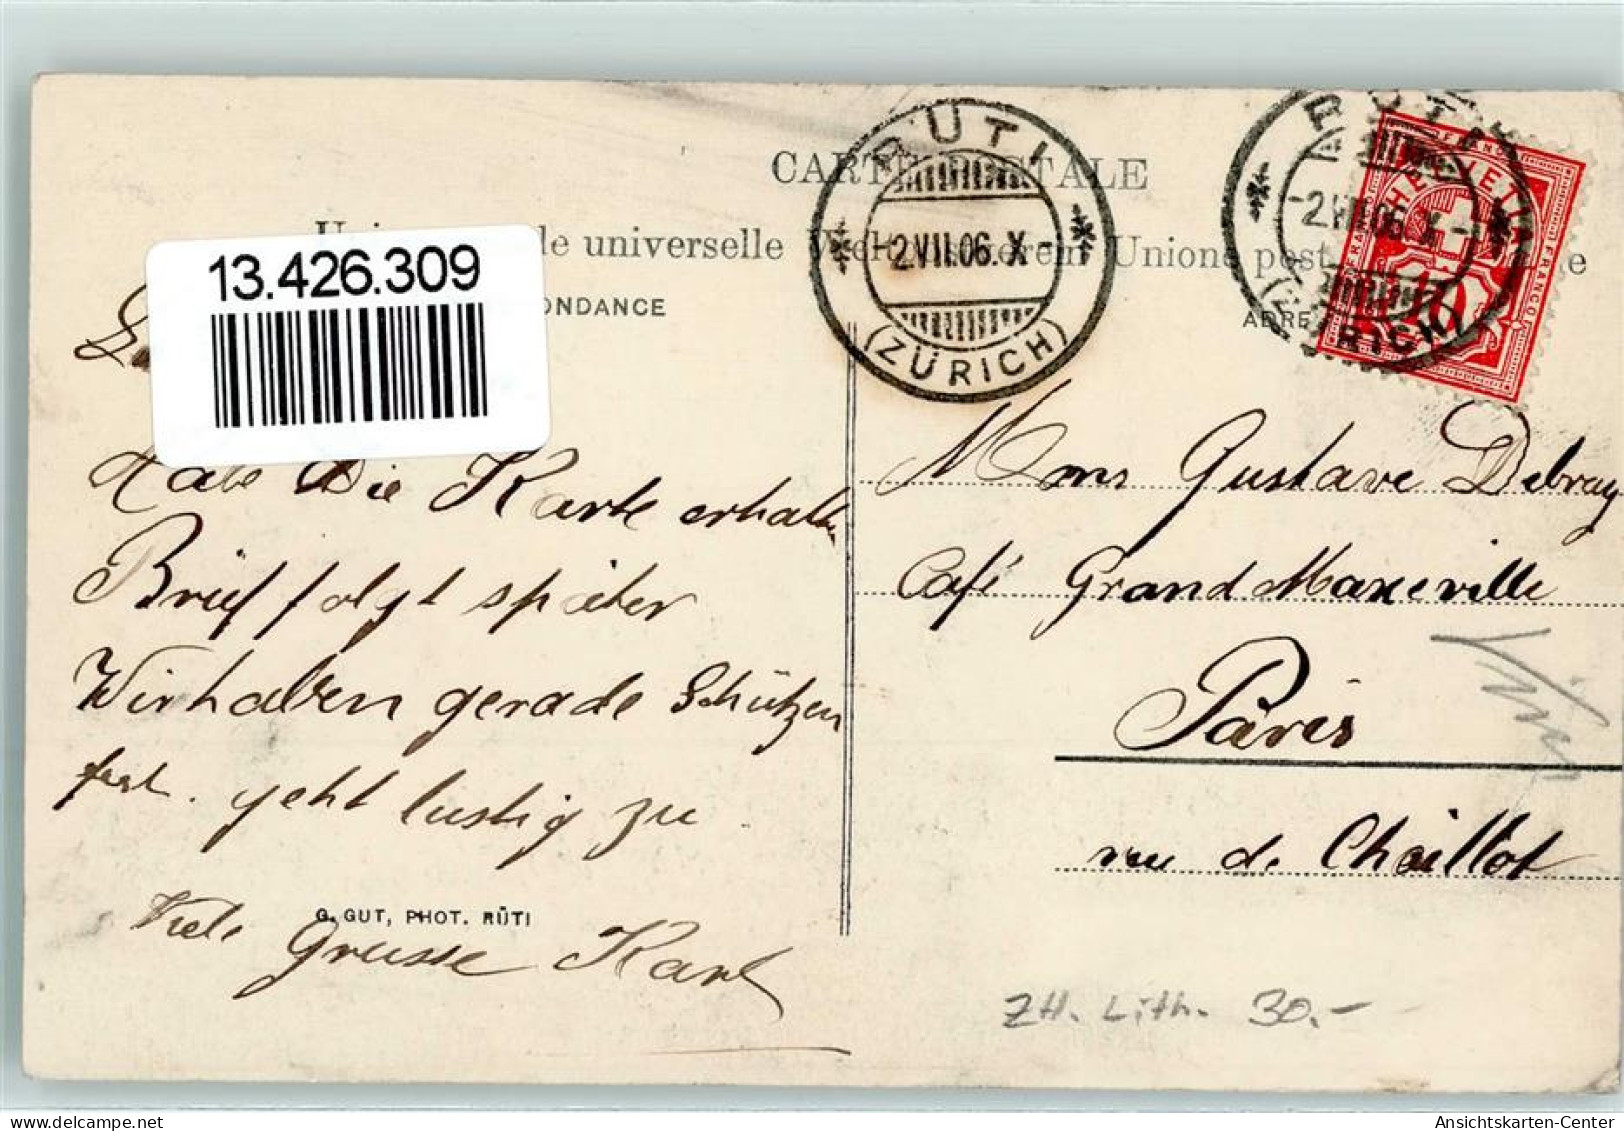 CARTE POSTALE
de universelle Weltpostverein Unione post
ONDANCE
ADRE
13.426.309
RÜTI
-2.VII.06.X-
(ZÜRICH)
RÜTI
-2.VII.06.X-
(ZÜRICH)
FRANCO
HELVETIA
FRANCO
10
Habe Die Karte erhalten
Brief folgt später
Wir haben gerade Schützen
fest. geht lustig zu
Viele Grusse Karl
G. GUT, PHOT. RÜTI
Mons Gustave Debray
Café Grand Maxeville
Paris
rue de Chaillot
ZH. Lith. 30.-
hosted by delcampe.net
Ansichtskarten-Center